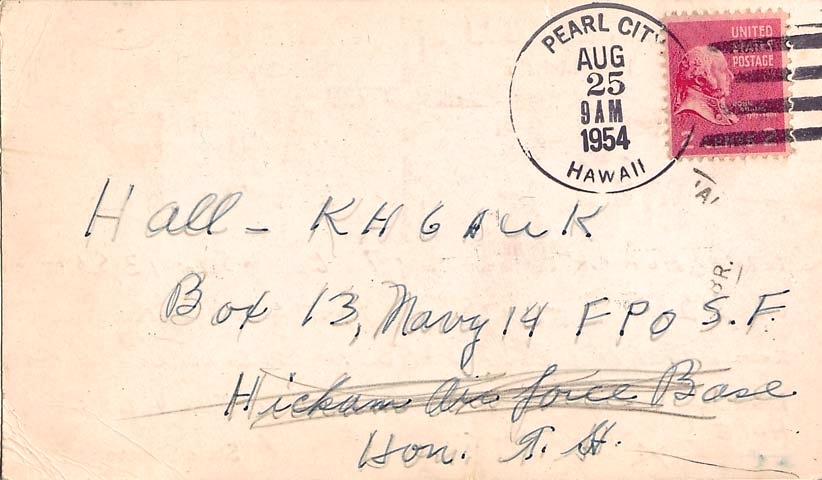 PEARL CITY
AUG
25
9 AM
1954
HAWAII
UNITED
STATES
POSTAGE
Hall - KH6AUK
Box 13, Navy 14 FPO S.F.
Hickam Air Force Base
Hon. T. H.